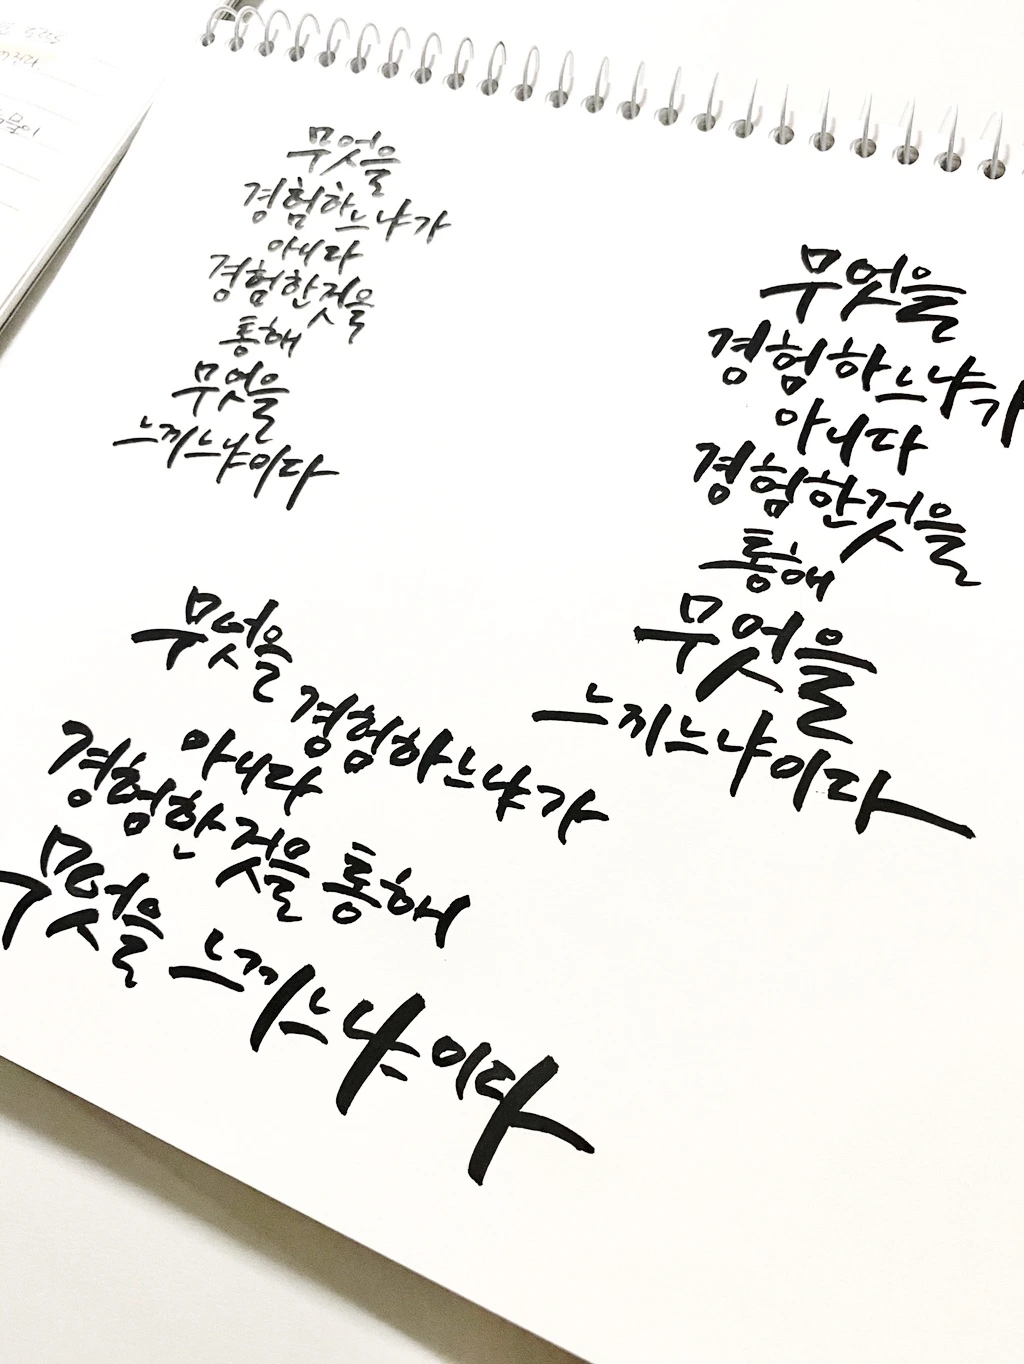 무엇을
경험하느냐가
아니다
경험한것을
통해
무엇을
느끼느냐이다
무엇을
경험하느냐가
아니다
경험한것을
통해
무엇을
느끼느냐이다
무엇을 경험하느냐가
아니다
경험한것을 통해
무엇을 느끼느냐이다